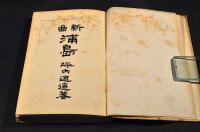 新曲
浦島
坪内逍遥著